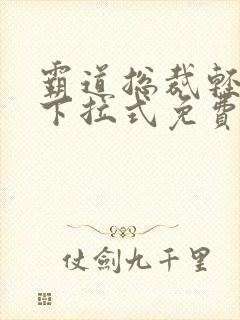 霸道总裁轻
下拉式免费
仗劍九千里